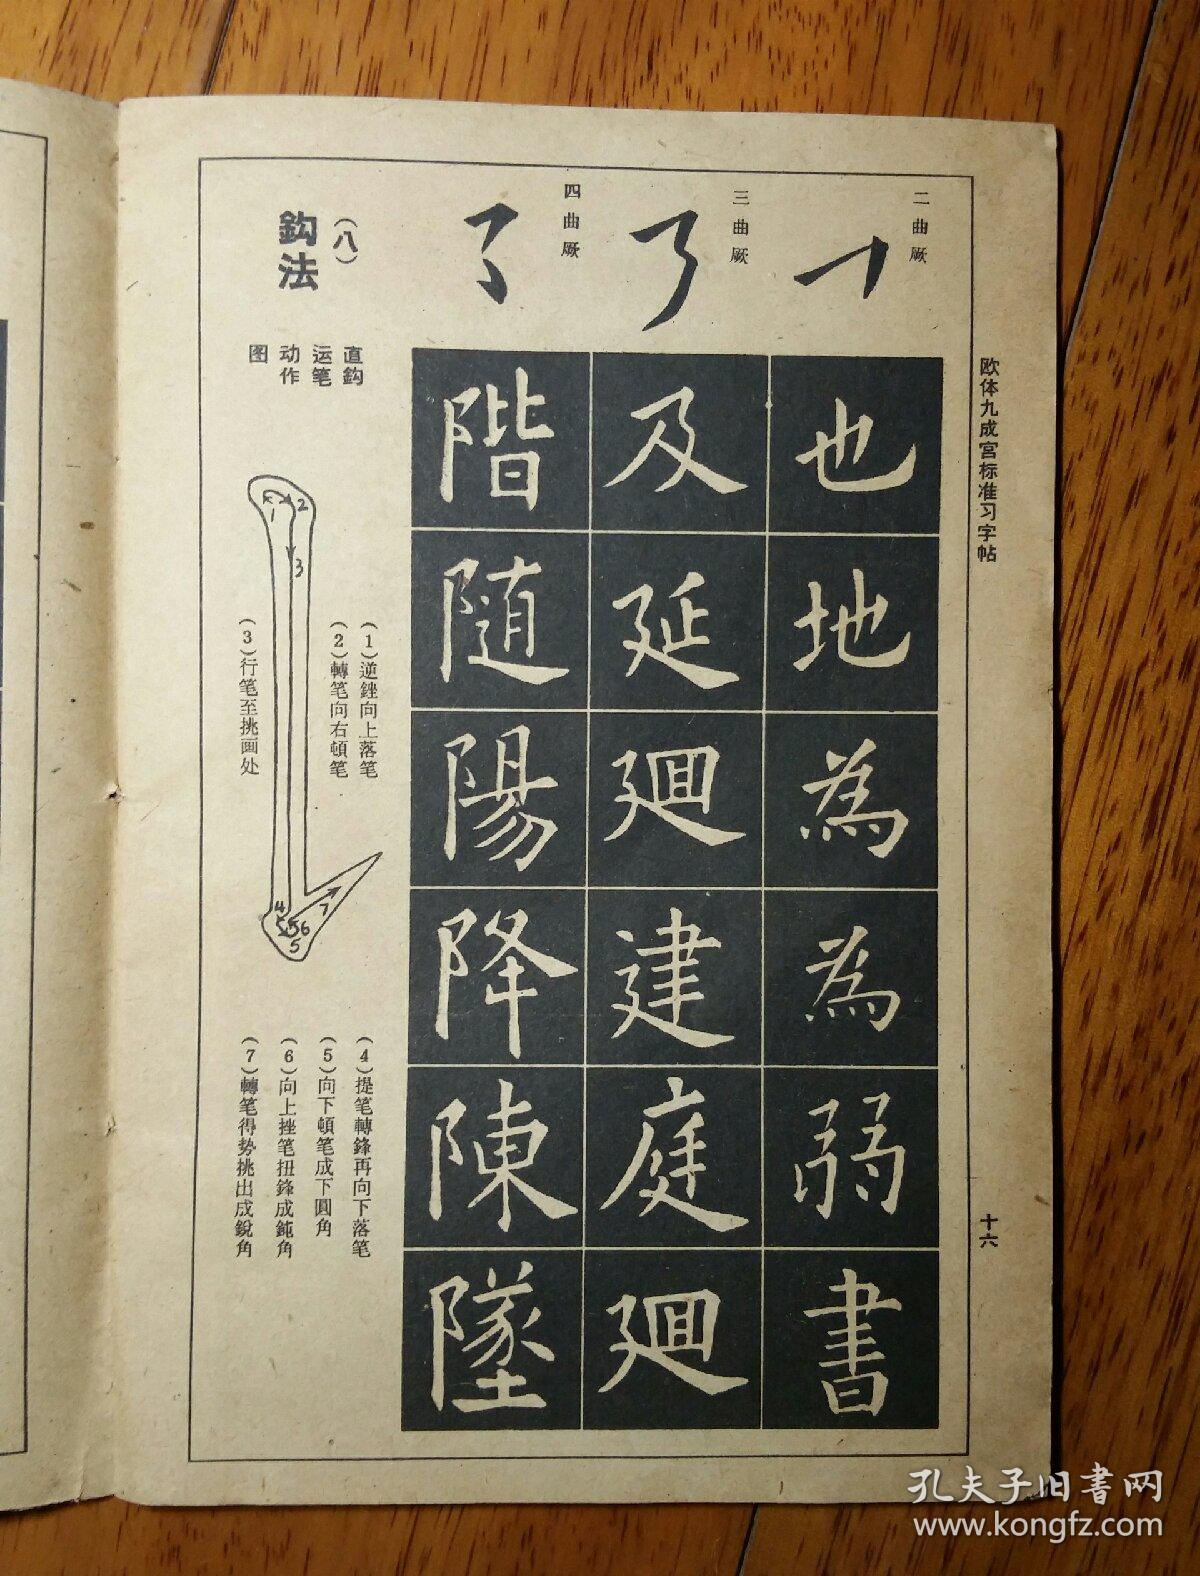 欧体九成宮标准习字帖
十六
二曲厥
也地為為弱書
三曲厥
及延廻建庭廻
四曲厥
階随陽降陳墜
(八)
鈎法
直鈎
运笔
动作
图
1
2
3
4
5
5
6
7
(1)逆銼向上落笔
(2)轉笔向右頓笔
(3)行笔至挑画处
(4)提笔轉鋒再向下落笔
(5)向下頓笔成下圓角
(6)向上挫笔扭鋒成鈍角
(7)轉笔得势挑出成銳角
孔夫子旧書网
www.kongfz.com